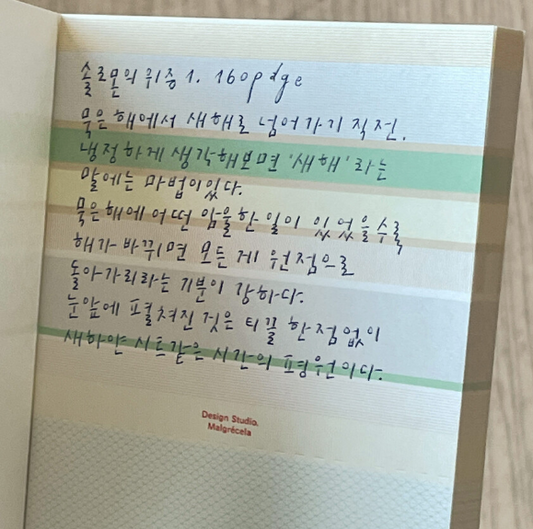 솔로몬의 위증 1. 160page
묵은 해에서 새해로 넘어가기 직전.
냉정하게 생각해보면 '새해'라는
말에는 마법이있다.
묵은해에 어떤 암울한 일이 있었을수록
해가 바뀌면 모든 게 원점으로
돌아가리라는 기분이 강하다.
눈앞에 펼쳐진 것은 티끌 한점없이
새하얀 시트같은 시간의 평원이다.
Design Studio.
Malgrécela